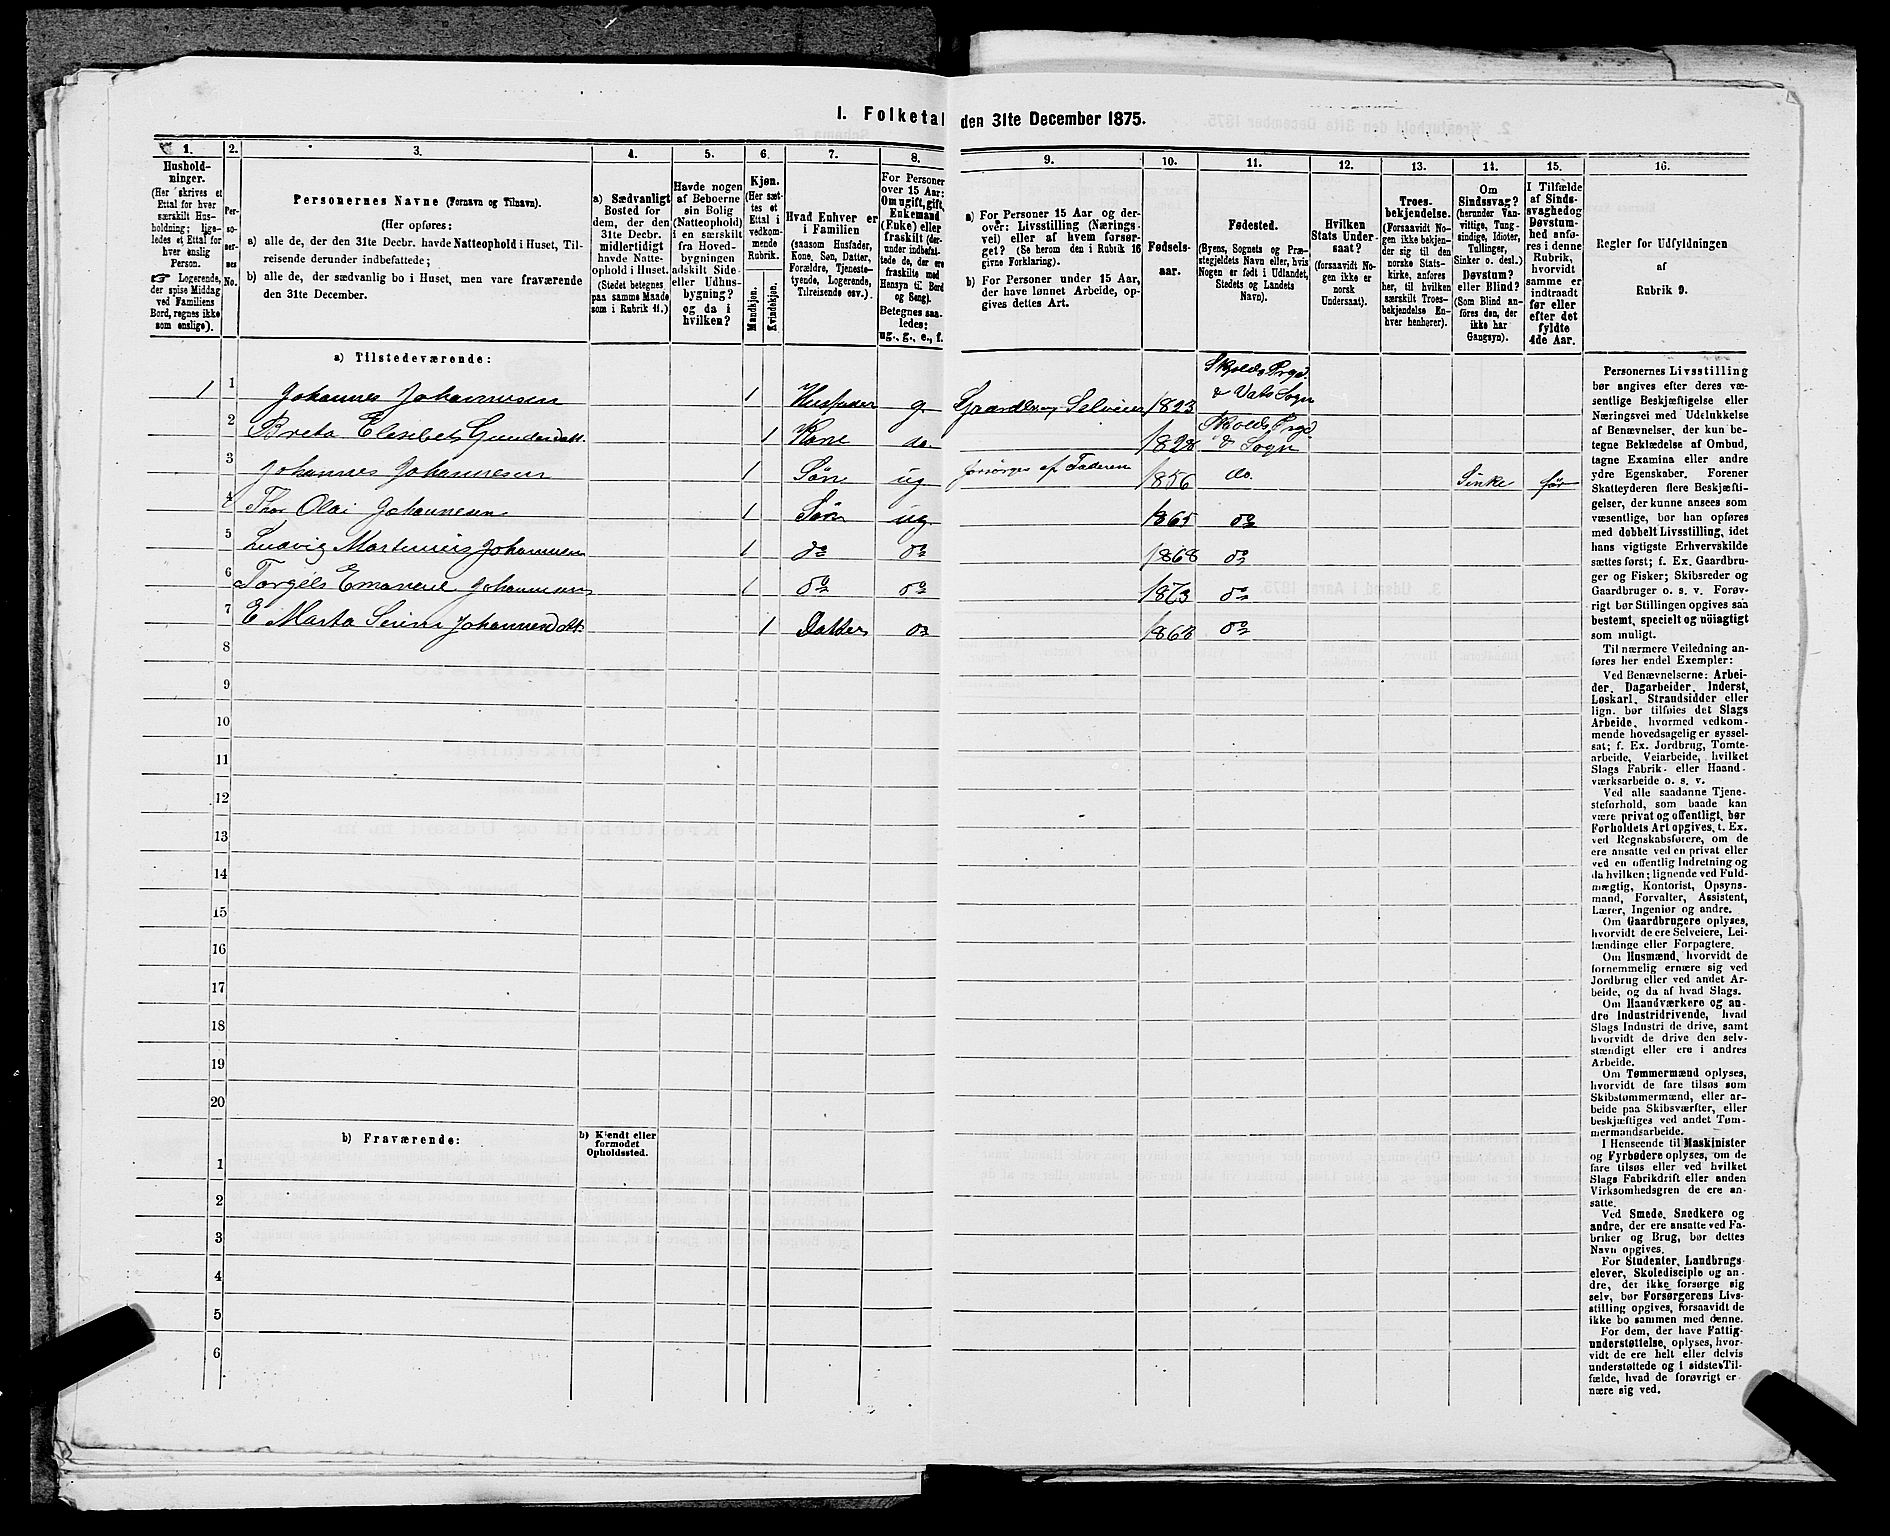 I. Folketal den 31te December 1875.
1. 2. 3. 4. 5. 6. 7. 8. 9. 10. 11. 12. 13. 14. 15. 16.
Hushold-
ninger.
(Her skrives et
Ettal for hver
særskilt Hus-
holdning; lige-
ledes et Ettal for
hver enslig
Person.
☞ Logerende,
der spise Middag
ved Familiens
Bord, regnes ikke
som enslige).
Per-
so-
ner-
nes
No.
Personernes Navne (Fornavn og Tilnavn).
(Her opføres:
a) alle de, der den 31te Decbr. havde Natteophold i Huset, Til-
reisende derunder indbefattede;
b) alle de, der sædvanlig bo i Huset, men vare fraværende
den 31te December.
a) Sædvanligt
Bosted for
dem, der den
31te Decbr.
midlertidigt
havde Natte-
ophold i Huset.
(Stedet betegnes
paa samme Maade
som i Rubrik 11.)
Havde nogen
af Beboerne
sin Bolig
(Natteophold)
i en særskilt
fra Hoved-
bygningen
adskilt Side-
eller Udhus-
bygning?
og da i
hvilken?
Kjøn.
(Her sæt-
tes et
Ettal i
vedkom-
mende
Rubrik.
Mandkjøn.
Kvindekjøn.
Hvad Enhver er
i Familien
(saasom Husfader,
Kone, Søn, Datter,
Forældre, Tjeneste-
tyende, Logerende,
Tilreisende osv.).
For Personer
over 15 Aar:
Om ugift, gift,
Enkemand
(Enke) eller
fraskilt (der-
under indbefat-
tede de, der ere
fraskilte med
Hensyn til Bord
og Seng).
Betegnes saa-
ledes:
ug., g., e., f.
a) For Personer 15 Aar og der-
over: Livsstilling (Nærings-
vei) eller af hvem forsør-
get? (Se herom den i Rubrik 16
givne Forklaring).
b) For Personer under 15 Aar,
der have lønnet Arbeide, op-
gives dettes Art.
Fødsels-
aar.
Fødested.
(Byens, Sognets og Præ-
stegjeldets Navn eller, hvis
Nogen er født i Udlandet,
Stedets og Landets
Navn).
Hvilken
Stats Under-
saat?
(forsaavidt No-
gen ikke er
norsk
Undersaat).
Troes-
bekjendelse.
(Forsaavidt No-
gen ikke bekjen-
der sig til den
norske Stats-
kirke, anføres
her, til hvilken
særskilt Troes-
bekjendelse En-
hver henhører).
Om
Sindssvag?
(herunder Van-
vittige, Tung-
sindige, Idioter,
Tullinger,
Sinker o. desl.)
Døvstum?
eller Blind?
(Som Blind an-
føres den, der
ikke har
Gangsyn).
I Tilfælde
af Sinds-
svaghedog
Døvstum-
hed anfø-
res i denne
Rubrik,
hvorvidt
samme er
indtraadt
før eller
efter det
fyldte
4de Aar.
Regler for Udfyldningen
af
Rubrik 9.
a) Tilstedeværende:
1 1 Johannes Johannesen 1 Husfader g. Gaardbr. og Selveier 1823 Skjolds Prgd. & Vats Sogn
2 Breta Elesibet Gundersdatt. 1 Kone do 1828 Skjolds Prgd. & Sogn
3 Johannes Johannesen 1 Søn ug forsørges af Faderen 1856 do. Sinke før
4 Thor Olai Johannesen 1 Søn ug. 1865 do
5 Ludvig Martinius Johannesen 1 do do 1868 do
6 Torgels Emanuel Johannesen 1 do do 1873 do
7 E Marta Serine Johannesdatt. 1 Datter do 1863 do
8
9
10
11
12
13
14
15
16
17
18
19
20
b) Fraværende:
b) Kjendt eller
formodet
Opholdssted.
1
2
3
4
5
6
Personernes Livsstilling
bør angives efter deres væ-
sentlige Beskjæftigelse eller
Næringsvei med Udelukkelse
af Benævnelser, der kun be-
tegne Beklædelse af Ombud,
tagne Examina eller andre
ydre Egenskaber. Forener
Skatteyderen flere Beskjæfti-
gelser, der kunne ansees som
væsentlige, bør han opføres
med dobbelt Livsstilling, idet
hans vigtigste Erhvervskilde
sættes først; f. Ex. Gaardbru-
ger og Fisker; Skibsreder og
Gaardbruger o. s. v. Forøv-
rigt bør Stillingen opgives saa
bestemt, specielt og nøiagtigt
som muligt.
Til nærmere Veiledning an-
føres her endel Exempler:
Ved Benævnelserne: Arbei-
der, Dagarbeider, Inderst,
Løskarl, Strandsidder eller
lign. bør tilføies det Slags
Arbeide, hvormed vedkom-
mende hovedsagelig er syssel-
sat; f. Ex. Jordbrug, Tomte-
arbeide, Veiarbeide, hvilket
Slags Fabrik- eller Haand-
værksarbeide o. s. v.
Ved alle saadanne Tjene-
steforhold, som baade kan
være privat og offentligt, bør
Forholdets Art opgives, t. Ex.
ved Regnskabsførere, om de
ere ansatte ved en privat eller
ved en offentlig Indretning og
da hvilken; lignende ved Fuld-
mægtig, Kontorist, Opsyns-
mand, Forvalter, Assistent,
Lærer, Ingeniør og andre.
Om Gaardbrugere oplyses,
hvorvidt de ere Selveiere, Lei-
lændinge eller Forpagtere.
Om Husmænd, hvorvidt de
fornemmelig ernære sig ved
Jordbrug eller ved andet Ar-
beide, og da af hvad Slags.
Om Haandværkere og an-
dre Industridrivende, hvad
Slags Industri de drive, samt
hvorvidt de drive den selv-
stændigt eller ere i andres
Arbeide.
Om Tømmermænd oplyses,
hvorvidt de fare tilsøs som
Skibstømmermænd, eller ar-
beide paa Skibsværfter, eller
beskjæftiges ved andet Tøm-
mermandsarbeide.
I Henseende til Maskinister
og Fyrbødere oplyses, om de
fare tilsøs eller ved hvilket
Slags Fabrikdrift eller anden
Virksomhedsgren de ere an-
satte.
Ved Smede, Snedkere og
andre, der ere ansatte ved Fa-
briker og Brug, bør dettes
Navn opgives.
For Studenter, Landbrugs-
elever, Skoledisciple og an-
dre, der ikke forsørge sig
selv, bør Forsørgerens Livs-
stilling opgives, forsaavidt de
ikke bo sammen med denne.
For dem, der have Fattig-
understøttelse, oplyses, hvor-
vidt de ere helt eller delvis
understøttede og i sidste Til-
fælde, hvad de forøvrigt er-
nære sig ved.